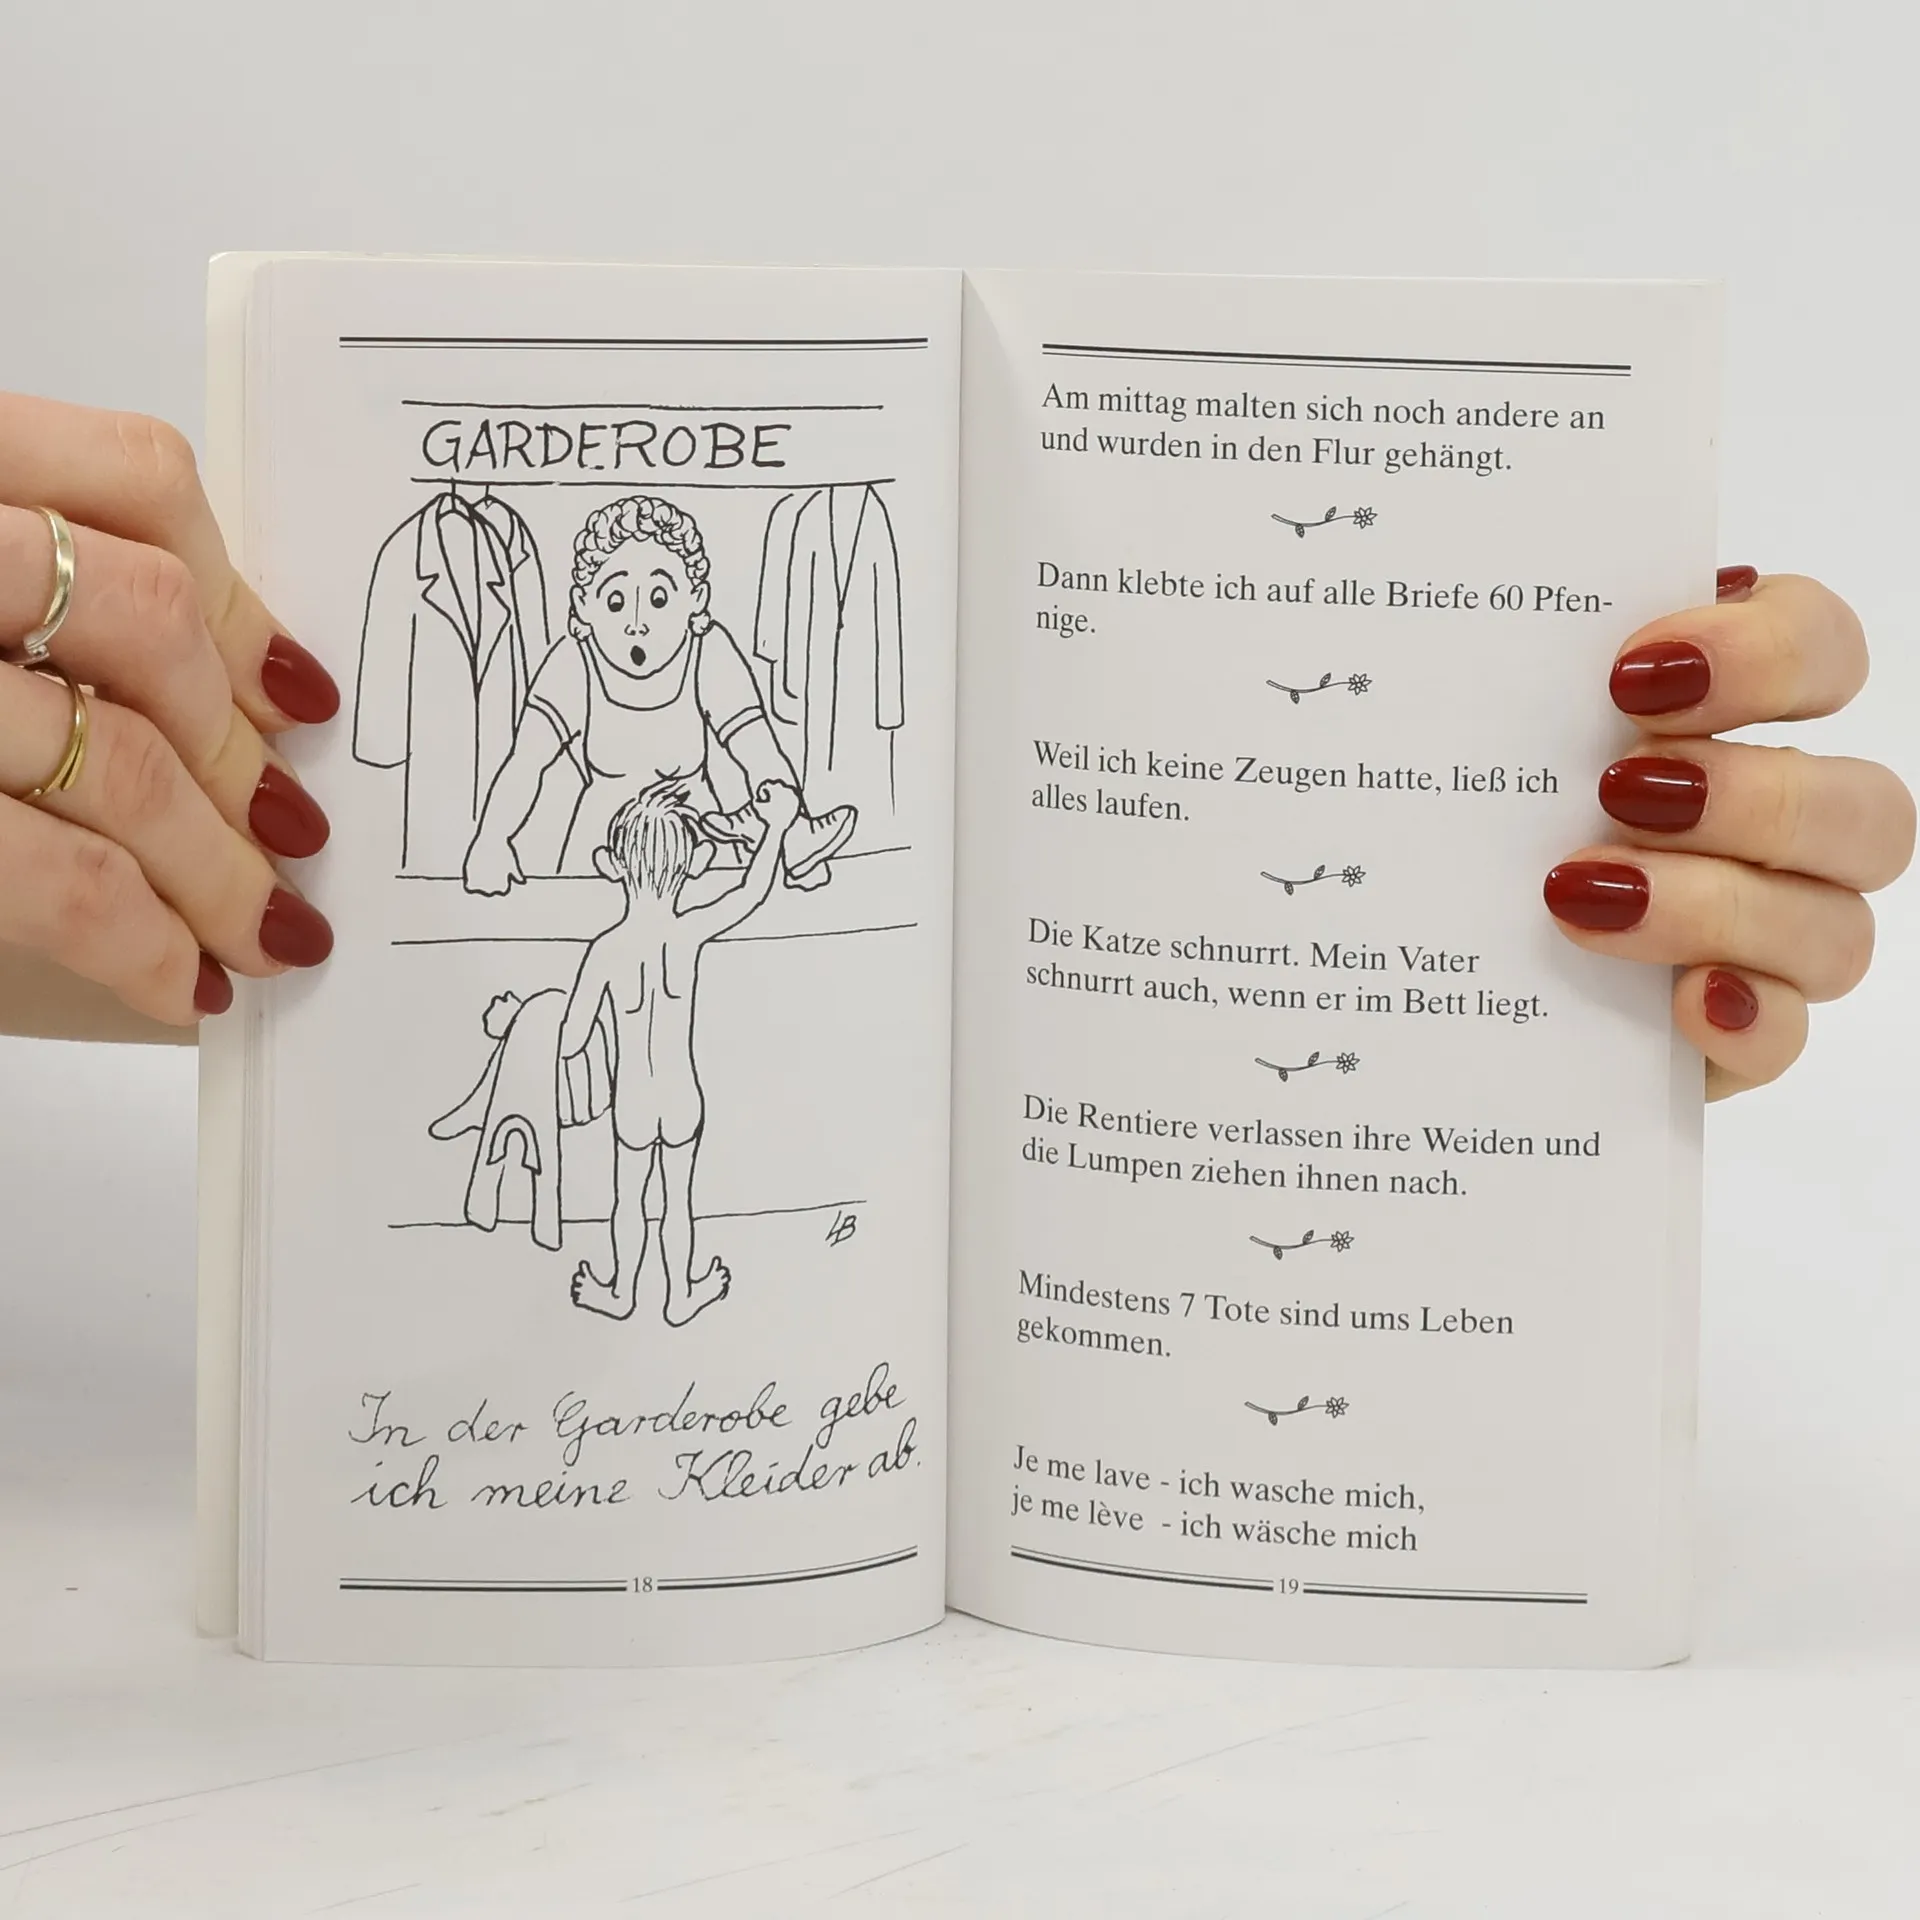 GARDEROBE
LB
In der Garderobe gebe
ich meine Kleider ab.
18
Am mittag malten sich noch andere an
und wurden in den Flur gehängt.
Dann klebte ich auf alle Briefe 60 Pfen-
nige.
Weil ich keine Zeugen hatte, ließ ich
alles laufen.
Die Katze schnurrt. Mein Vater
schnurrt auch, wenn er im Bett liegt.
Die Rentiere verlassen ihre Weiden und
die Lumpen ziehen ihnen nach.
Mindestens 7 Tote sind ums Leben
gekommen.
Je me lave - ich wasche mich,
je me lève - ich wäsche mich
19